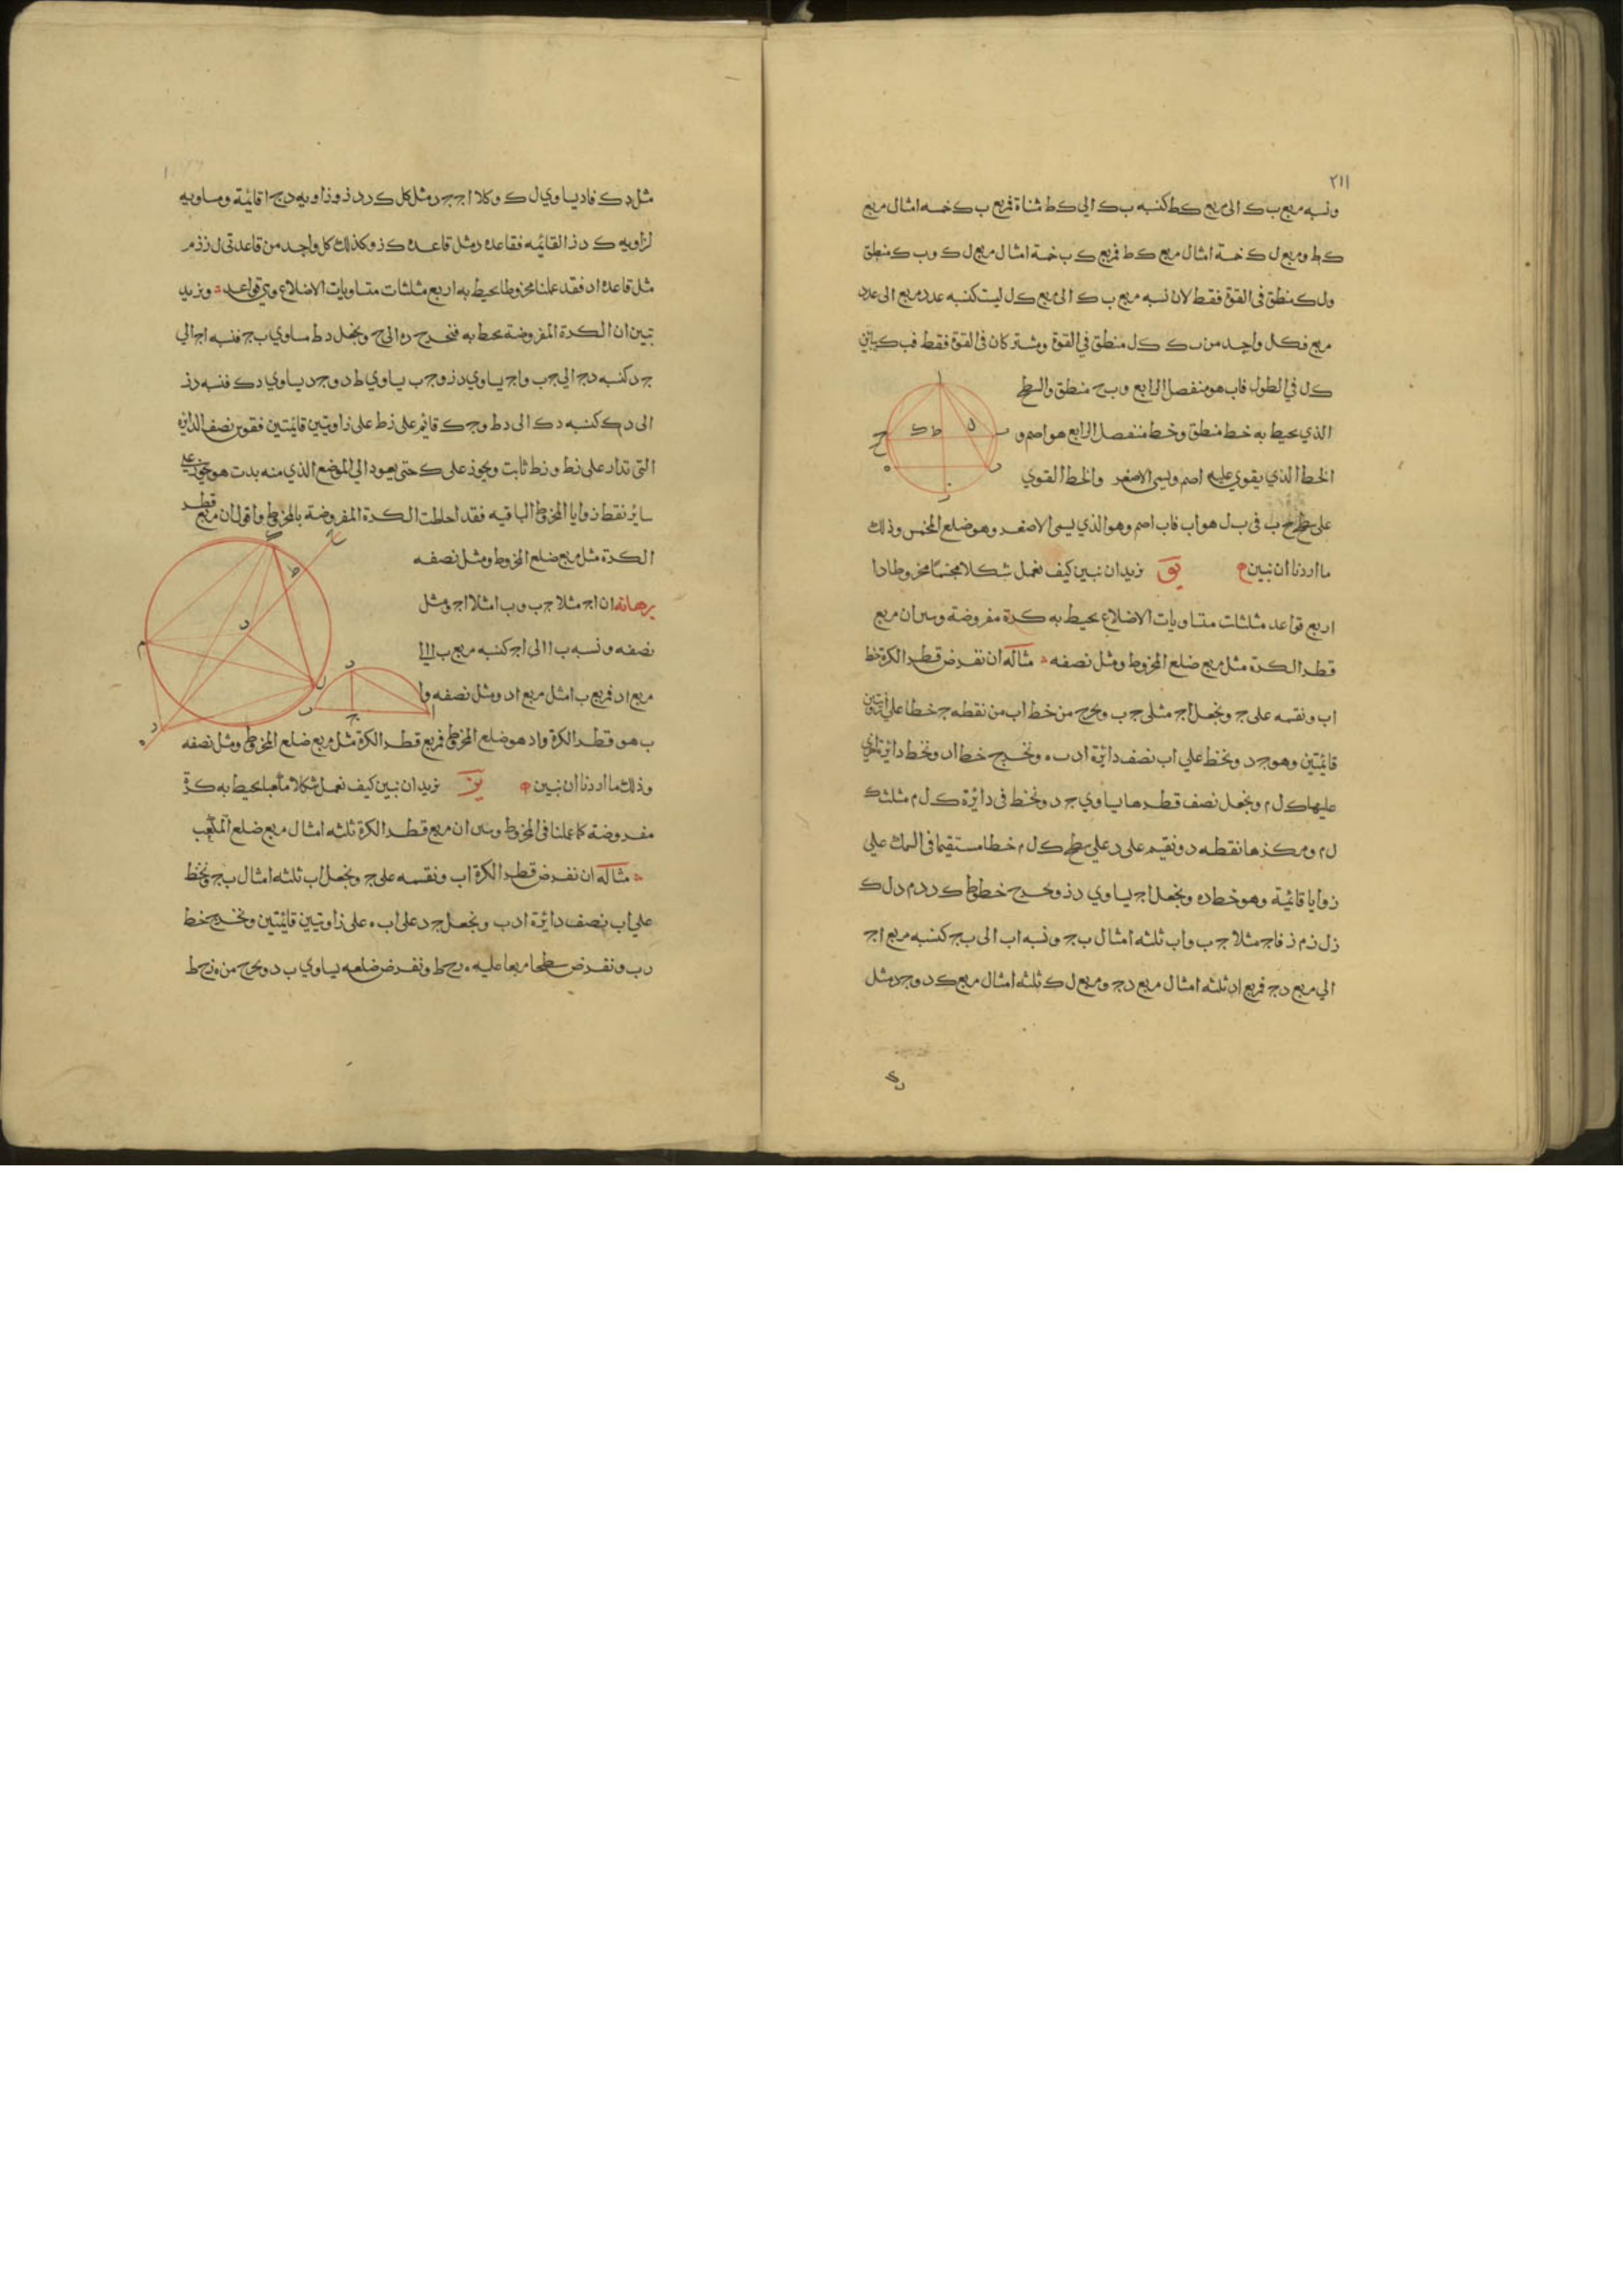 ٢١١
ونسبه مربع ب ك الى مربع ك ط كنسبه ب ك الى ك ط مثناة فمربع ب ك خمسه امثال مربع
ك ط ومربع ل ك خمسة امثال مربع ك ط فمربع ك ب خمسة امثال مربع ل ك و ب ك منطق
ول ك منطق فى القوة فقط لان نسبه مربع ب ك الى مربع ك ل ليست كنسبه عدد مربع الى عدد
مربع فكل واحد من ب ك ك ل منطق في القوة ومشتركان فى القوة فقط فب ك يباين
ك ل في الطول فاب هو منفصل الرابع وب ح منطق والسطح
الذي يحيط به خط منطق وخط منفصل الرابع هو اصم و
الخط الذي يقوي عليه اصم ويسمى الاصغر والخط القوي
على سطح ح ب فى ب ل هو اب فاب اصم وهو الذي يسمى الاصغر وهو ضلع المخمس وذلك
ما اردنا ان نبين يو نريد ان نبين كيف نعمل شكلا مجسما مخروطا ذا
اربع قواعد مثلثات متساويات الاضلاع يحيط به كرة مفروضة وبين ان مربع
قطر الكرة مثل مربع ضلع المخروط ومثل نصفه مثاله ان نفرض قطر الكرة خط
اب ونقسمه على ج ونجعل اج مثلى ج ب ونخرج من خط اب من نقطه ج خطا على زاويتين
قائمتين وهو ج د ونخط علي اب نصف دائرة ا د ب ونخرج خط اد ونخط دائرة اخرى
عليها ك ل م ونجعل نصف قطرها يساوي ج د ونخط فى دائرة ك ل م مثلث ك
ل م ومركزها نقطه د ونقيم على د علي سطح ك ل م خطا مستقيما فى السمك علي
زوايا قائمة وهو خط د ه ونجعل اج يساوي د ز ونخرج خطوط ك د د م د ل ك
ز ل ز م ز فاج مثلا ج ب واب ثلثه امثال ب ج ونسبه اب الى ب ج كنسبه مربع اج
الي مربع د ج فمربع اد ثلثه امثال مربع د ج ومربع ل ك ثلثه امثال مربع ك د وج د مثل
مثل د ك فاد يساوي ل ك وكلا اج ج د مثل كل ك د د ز وزاويه د ج ا قائمة ومساويه
لزاويه ك د ز القائمه فقاعده د مثل قاعدة ك ز وكذلك كل واحد من قاعدتى ل ز ز م
مثل قاعدة اد فقد عملنا مخروطا يحيط به اربع مثلثات متساويات الاضلاع وهي قواعد ونريد
نبين ان الكرة المفروضة تحيط به فنخرج ده الى ح ونجعل د ط مساوي ب ج فنسبه اج الي
ج د كنسبه د ج الي ج ب واج يساوي د ز وج ب يساوي ط د وج د يساوي د ك فنسبه د ز
الى د ك كنسبه د ك الى د ط وج ك قائم على ز ط على زاويتين قائمتين فقوس نصف الدائره
التى تدار على ز ط و ز ط ثابت ويجوز على ك حتى يعود الي الموضع الذي منه بدت هو يجوز على
ساير نقط زوايا المخروط الباقيه فقد احاطت الكرة المفروضة بالمخروط واقول ان مربع قطر
الكرة مثل مربع ضلع المخروط ومثل نصفه
برهانه ان اج مثلا ج ب وب ا مثلا اج ومثل
نصفه ونسبه ب ا الى اج كنسبه مربع ب ا الى
مربع اد فمربع ب ا مثل مربع اد ومثل نصفه وا
ب هو قطر الكرة واد هو ضلع المخروط فمربع قطر الكرة مثل مربع ضلع المخروط ومثل نصفه
وذلك ما اردنا ان نبين يز نريد ان نبين كيف نعمل شكلا مكعبا يحيط به كرة
مفروضة كما عملنا فى المخروط وبين ان مربع قطر الكرة ثلثه امثال مربع ضلع المكعب
مثاله ان نفرض قطر الكرة اب ونقسمه على ج ونجعل اب ثلثه امثال ب ج ونخط
علي اب نصف دائرة ا د ب ونجعل ج د على اب على زاويتين قائمتين ونخرج خط
د ب ونفرض سطحا مربعا عليه ه ز ح ط ونفرض ضلعه يساوي ب د ونخرج من ه ز ح ط